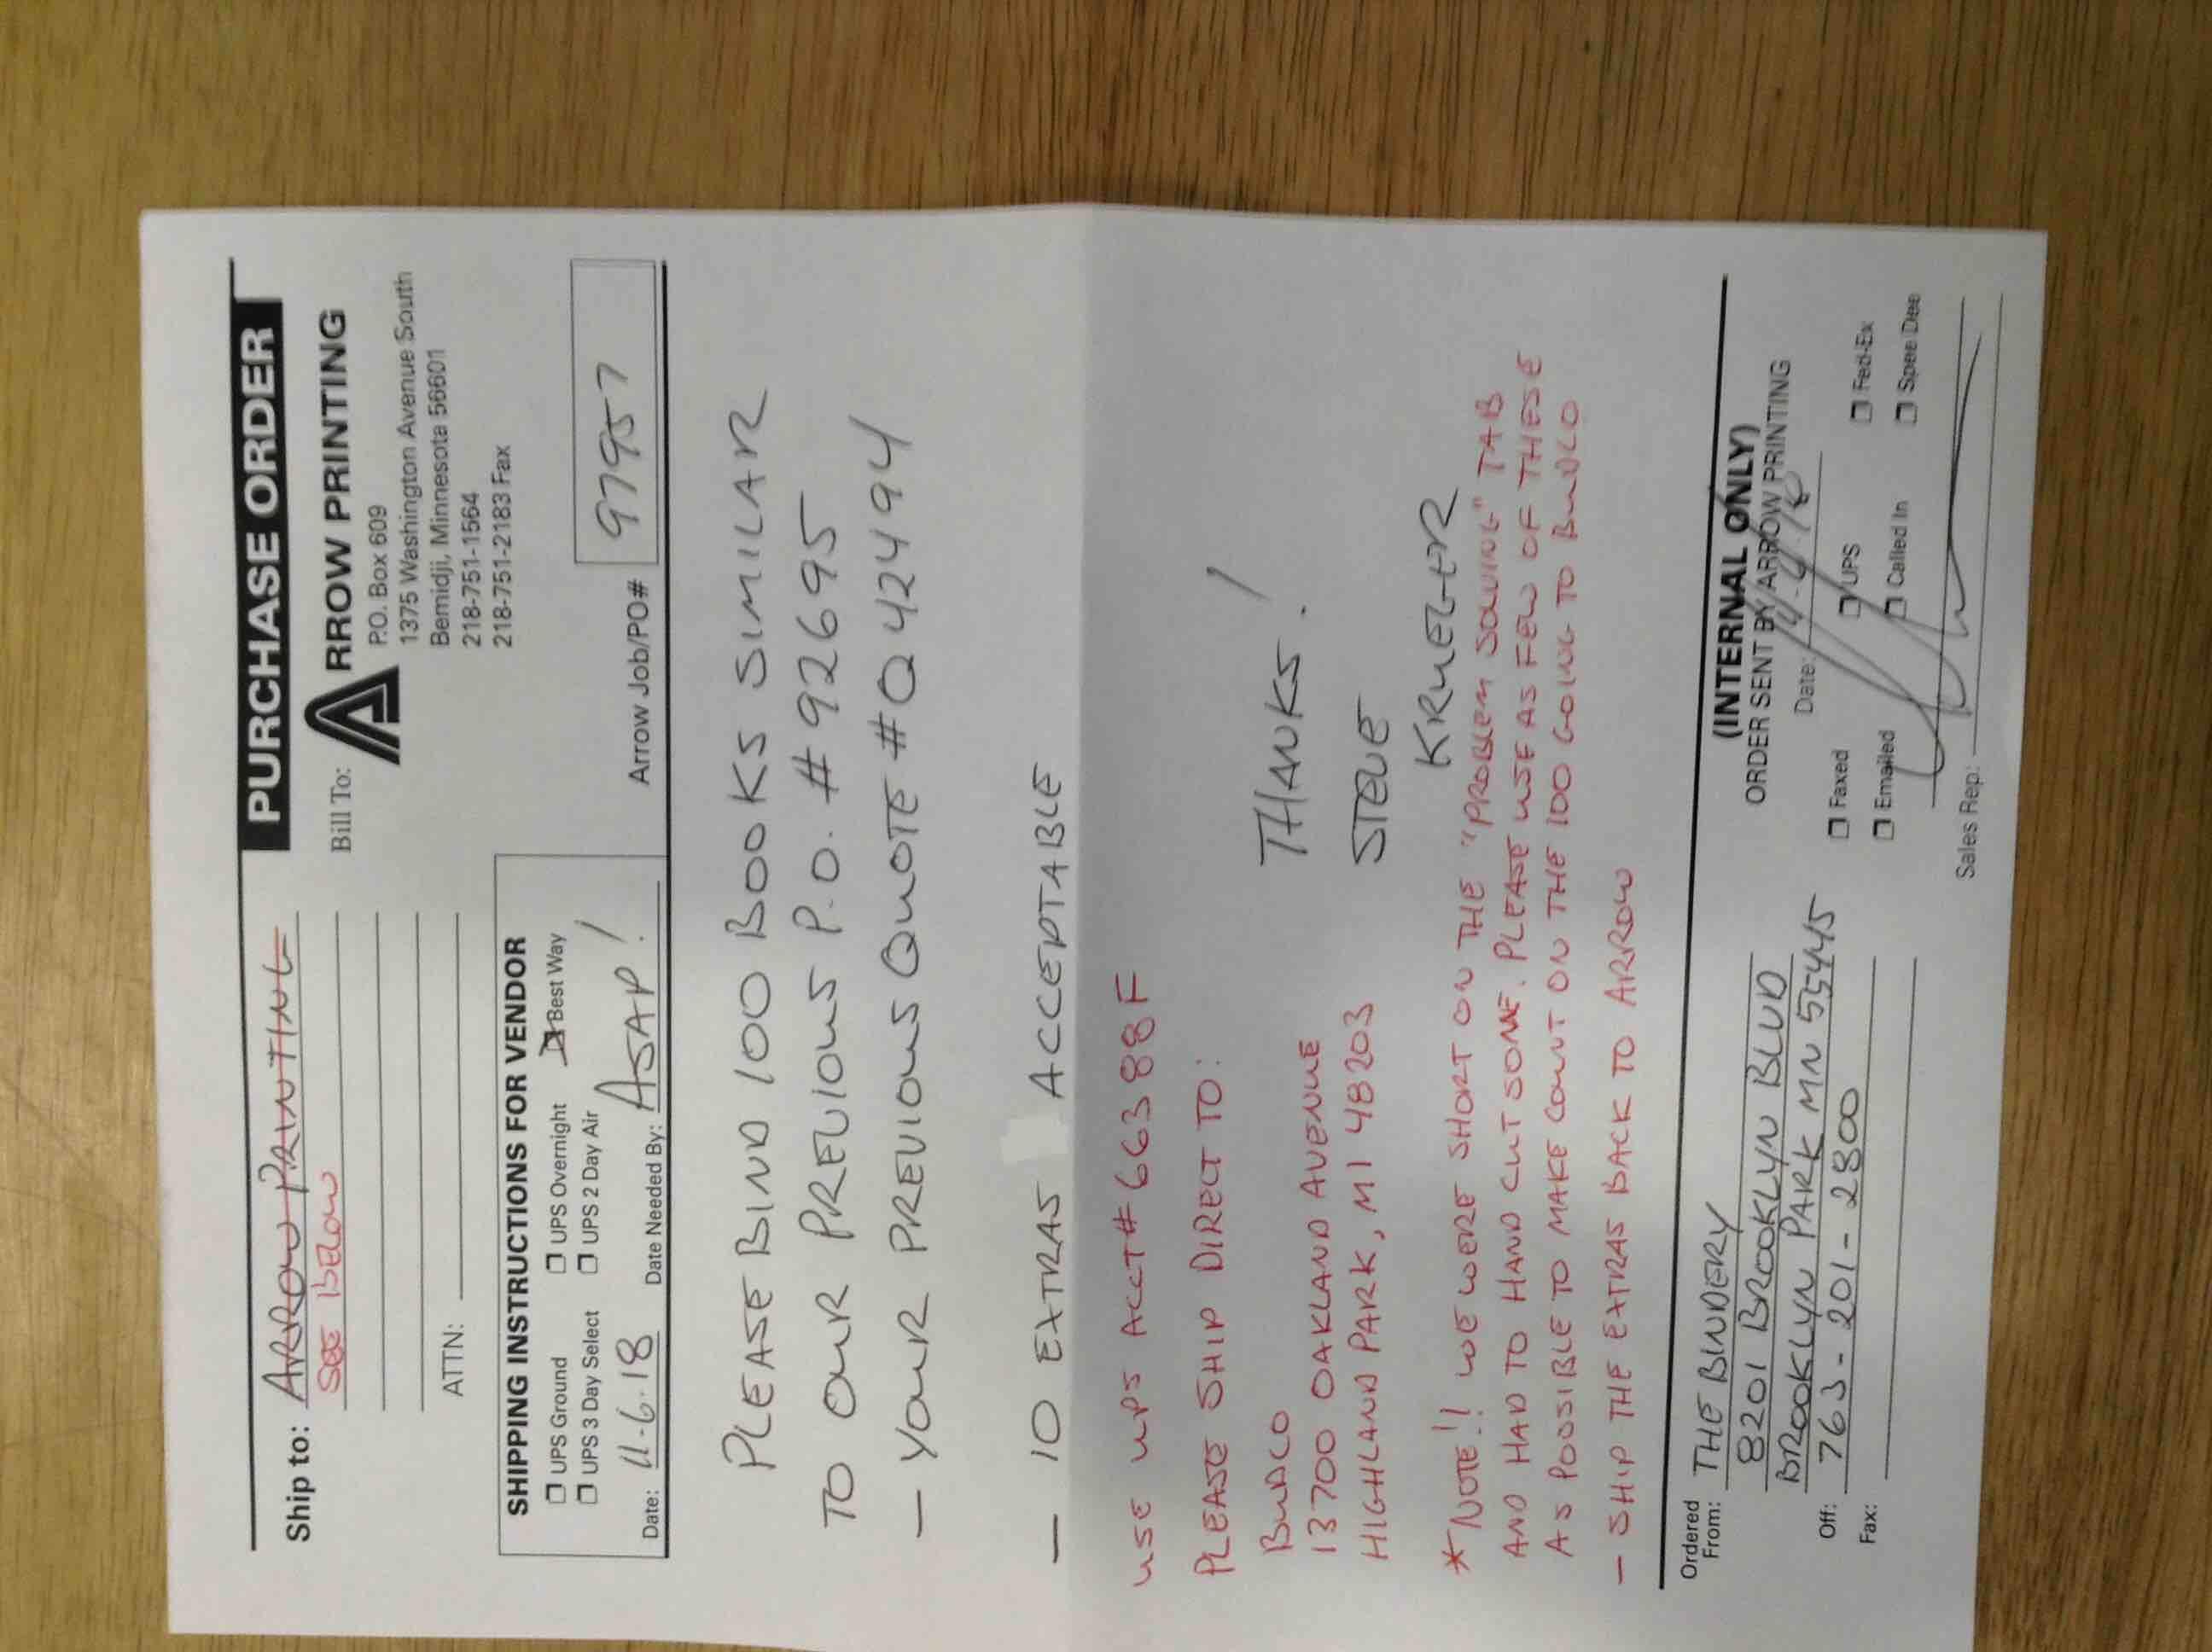 PURCHASE ORDER
Ship to: ARROW PRINTING
SEE BELOW
ATTN:
Bill To:
ARROW PRINTING
P.O. Box 609
1375 Washington Avenue South
Bemidji, Minnesota 56601
218-751-1564
218-751-2183 Fax
SHIPPING INSTRUCTIONS FOR VENDOR
UPS Ground UPS Overnight Best Way
UPS 3 Day Select UPS 2 Day Air
Date: 11-6-18 Date Needed By: ASAP!
Arrow Job/PO# 97957
PLEASE BIND 100 BOOKS SIMILAR
TO OUR PREVIOUS P.O. # 92695
- YOUR PREVIOUS QUOTE # Q42494
- 10 EXTRAS ACCEPTABLE
USE UPS ACCT# 66388F
PLEASE SHIP DIRECT TO:
BUDCO
13700 OAKLAND AVENUE
HIGHLAND PARK, MI 48203
THANKS!
STEVE
KRUEGER
*NOTE!! WE WERE SHORT ON THE "PROBLEM SOLVING" TAB
AND HAD TO HAND CUT SOME. PLEASE USE AS FEW OF THESE
AS POSSIBLE TO MAKE COUNT ON THE 100 GOING TO BUDCO
- SHIP THE EXTRAS BACK TO ARROW
Ordered From: THE BINDERY
8201 BROOKLYN BLVD
BROOKLYN PARK MN 55445
Off: 763-201-2800
Fax:
(INTERNAL ONLY)
ORDER SENT BY ARROW PRINTING
Date:
Faxed UPS Fed-Ex
Emailed Called In Spee Dee
Sales Rep: